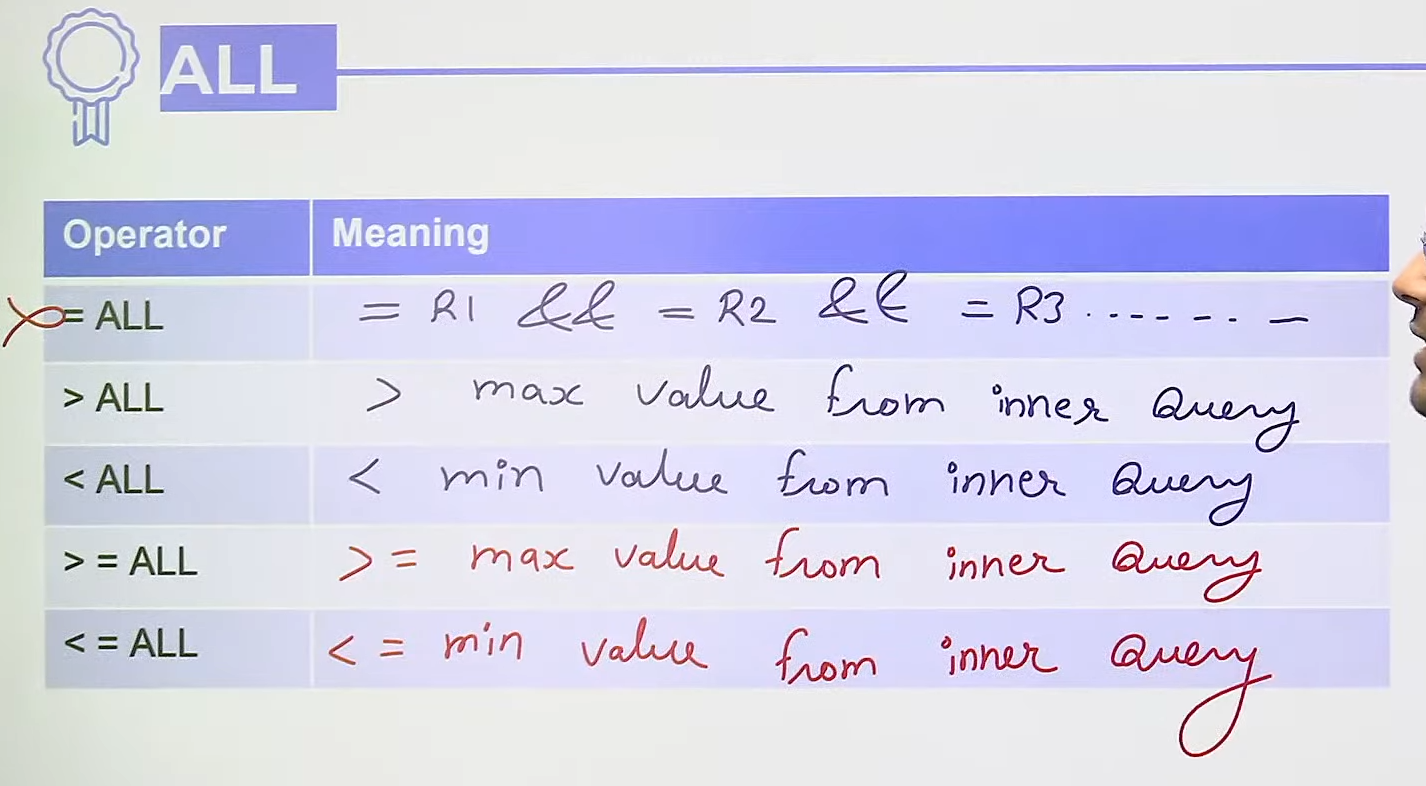 ALL
Operator Meaning
= ALL = R1 && = R2 && = R3 .......
> ALL > max value from inner Query
< ALL < min value from inner Query
> = ALL > = max value from inner Query
< = ALL < = min value from inner Query